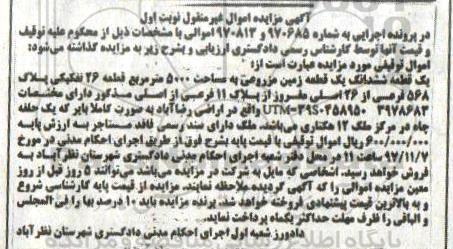 آگهی مزایده اموال غیرمنقول نوبت اول
در پرونده اجرایی به شماره ۹۷۰۶۸۵ و ۹۷۰۸۱۳ اموالی با مشخصات ذیل از محکوم علیه توقیف
و قیمت آنها توسط کارشناس رسمی دادگستری ارزیابی و بشرح زیر به مزایده گذاشته می‌شود:
اموال توقیفی مورد مزایده عبارت است از:
یک قطعه ششدانگ یک قطعه زمین مزروعی به مساحت ۵۰۰۰ مترمربع قطعه ۲۶ تفکیکی پلاک
۵۶۸ فرعی از ۲۶ اصلی مفروز از پلاک ۱۱ فرعی از اصلی مذکور دارای مختصات
UTM=39S-458950 3978683 واقع در اراضی رضا آباد به صورت کاملا بایر که یک حلقه
چاه در مرکز ملک ۱۲ هکتاری می‌باشد. ملک دارای سند رسمی فاقد مستاجر به ارزش پایه
۶۰۰/۰۰۰/۰۰۰ ریال اموال توقیفی با قیمت پایه بشرح فوق از طریق اجرای احکام مدنی در مورخ
۹۷/۱۱/۷ ساعت ۱۱ در محل دفتر شعبه اجرای احکام مدنی دادگستری شهرستان نظرآباد به
فروش خواهد رسید. اشخاصی که مایل به شرکت در مزایده می‌باشد می‌توانند ۵ روز قبل از روز
معین مزایده اموالی را که آگهی گردیده ملاحظه نمایند. مزایده از قیمت پایه کارشناسی شروع
و به بالاترین قیمت پیشنهادی فروخته خواهد شد. برنده مزایده باید ۱۰ درصد بها را فی المجلس
و الباقی را ظرف مهلت حداکثر یکماه پرداخت نماید.
دادورز شعبه اول اجرای احکام مدنی دادگستری شهرستان نظرآباد